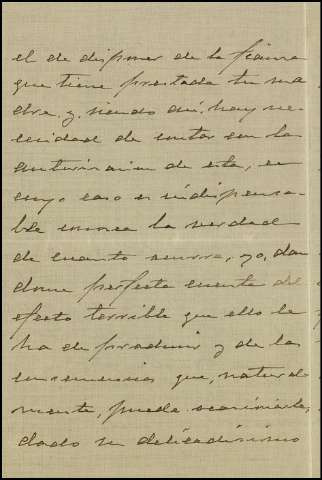 el de disponer de la fianza
que tiene prestada tu ma
dre y, siendo así, hay ne-
cesidad de contar con la
autorizacion de esta, en
cuyo caso es indispensa-
ble conozca la verdad
de cuanto ocurre, yo, dan
dome perfecta cuenta del
efecto terrible que ello le
ha de producir y de las
consecuencias que, natural
mente, puede ocasionarle,
dado su delicadísimo